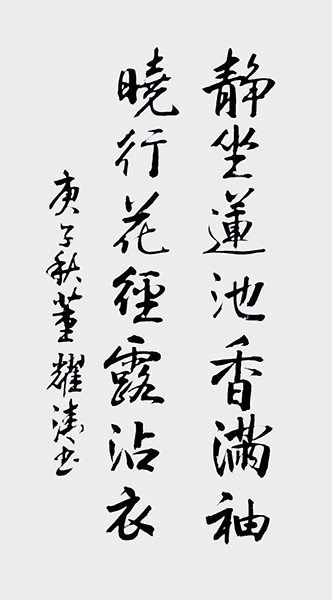 靜坐蓮池香滿袖
曉行花徑露沾衣
庚子秋董耀濤書